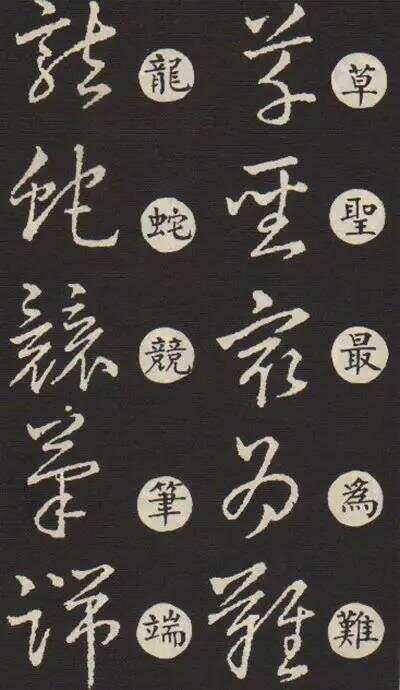 草聖最為難
龍蛇競筆端